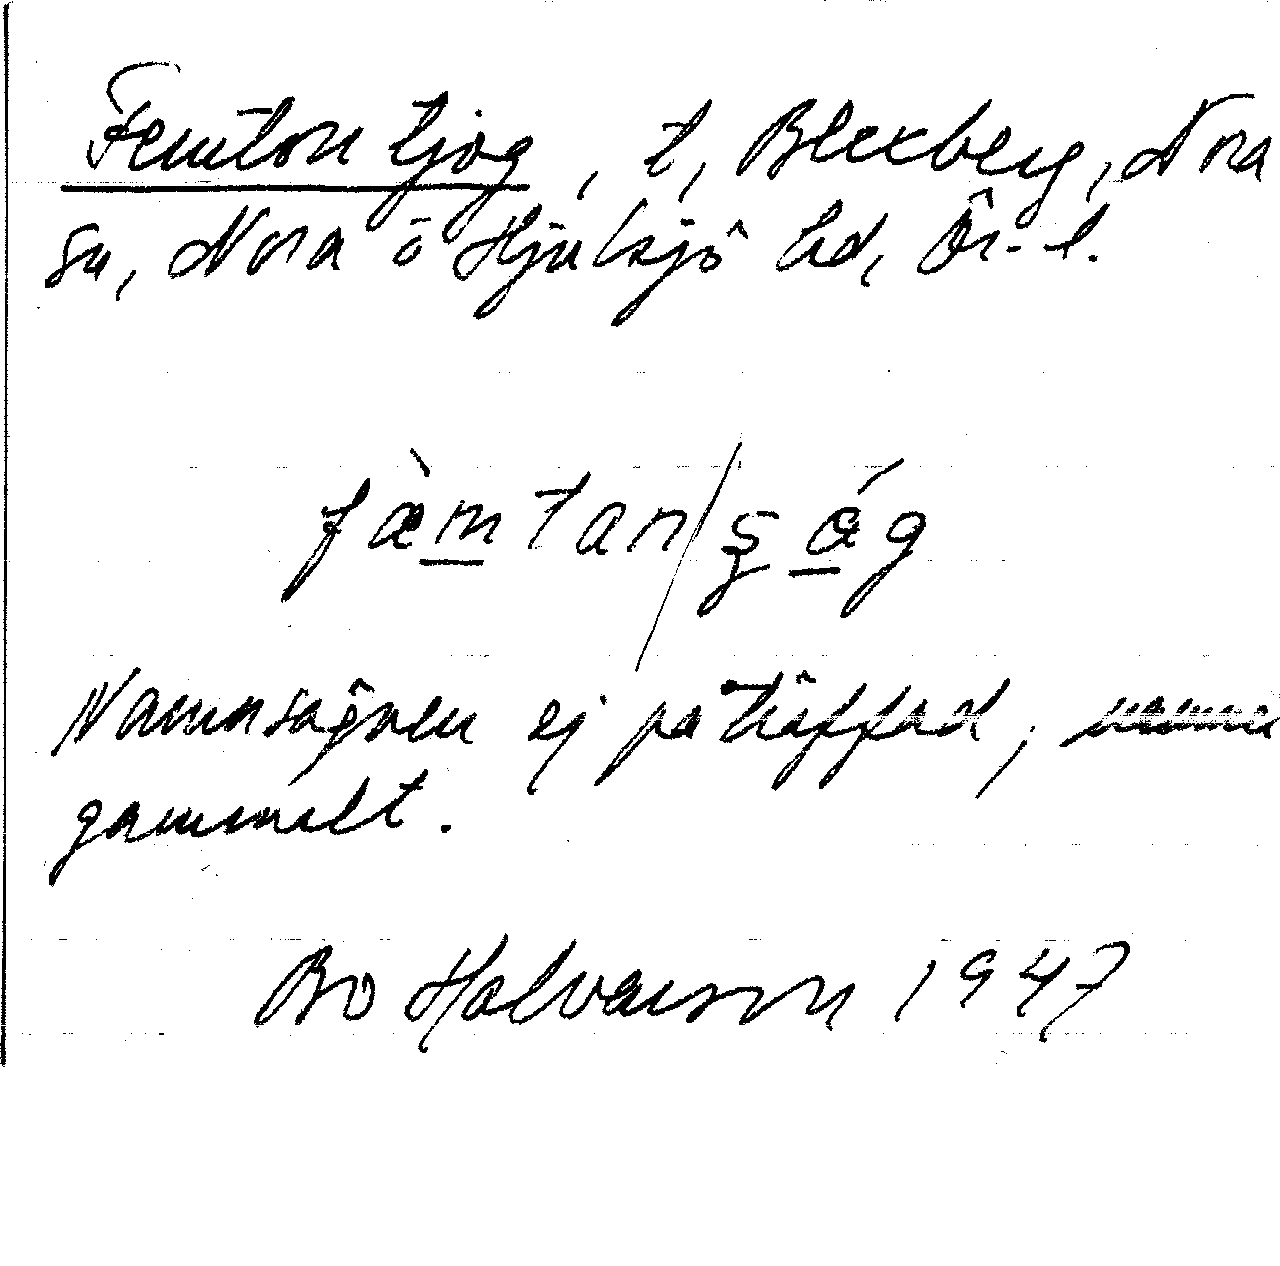 Femton tjog, t, Blexberg, Nora
sn, Nora o Hjulsjö hd, Ör. l.
fæ̀mtan/ʂǿg
Namnsägnen ej påträffad,
gammalt.
Bo Halvarson 1947